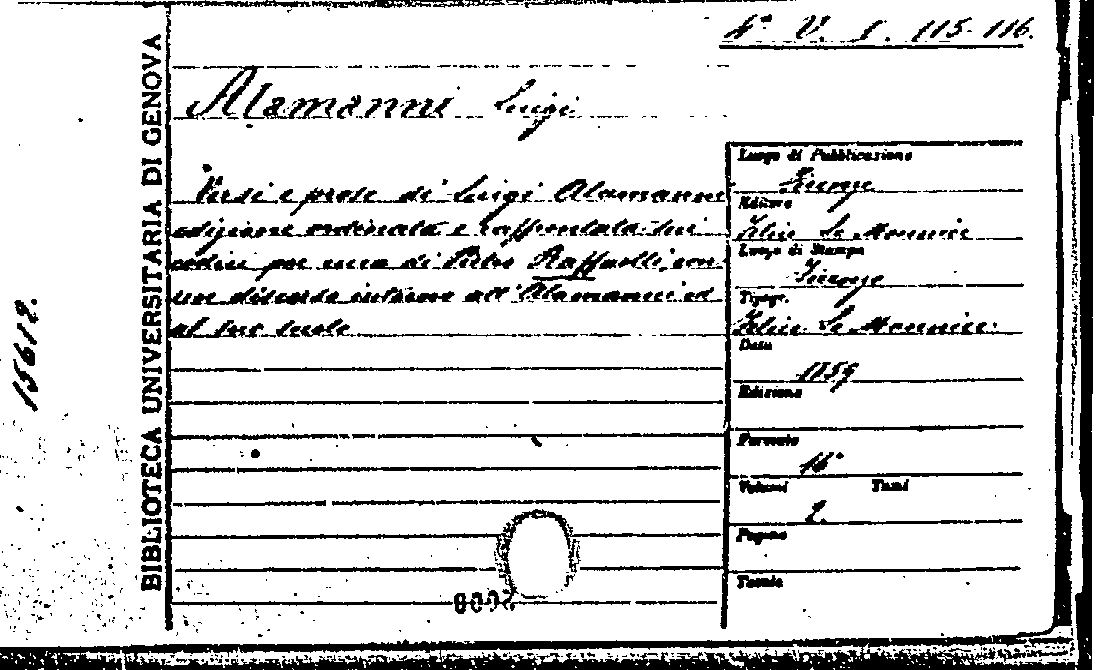 4ª V. I. 115-116.
BIBLIOTECA UNIVERSITARIA DI GENOVA
15612.
Alamanni Luigi
Versi e prose di Luigi Alamanni
edizione ordinata e raffrontata sui
codici per cura di Pietro Raffaelli, con
un discorso intorno all'Alamanni ed
al suo secolo
Luogo di Pubblicazione
Firenze
Editore
Felice Le Monnier
Luogo di Stampa
Firenze
Tipogr.
Felice Le Monnier
Data
1859
Edizione
Formato
16°
Volumi Tomi
2.
Pagine
Tavole